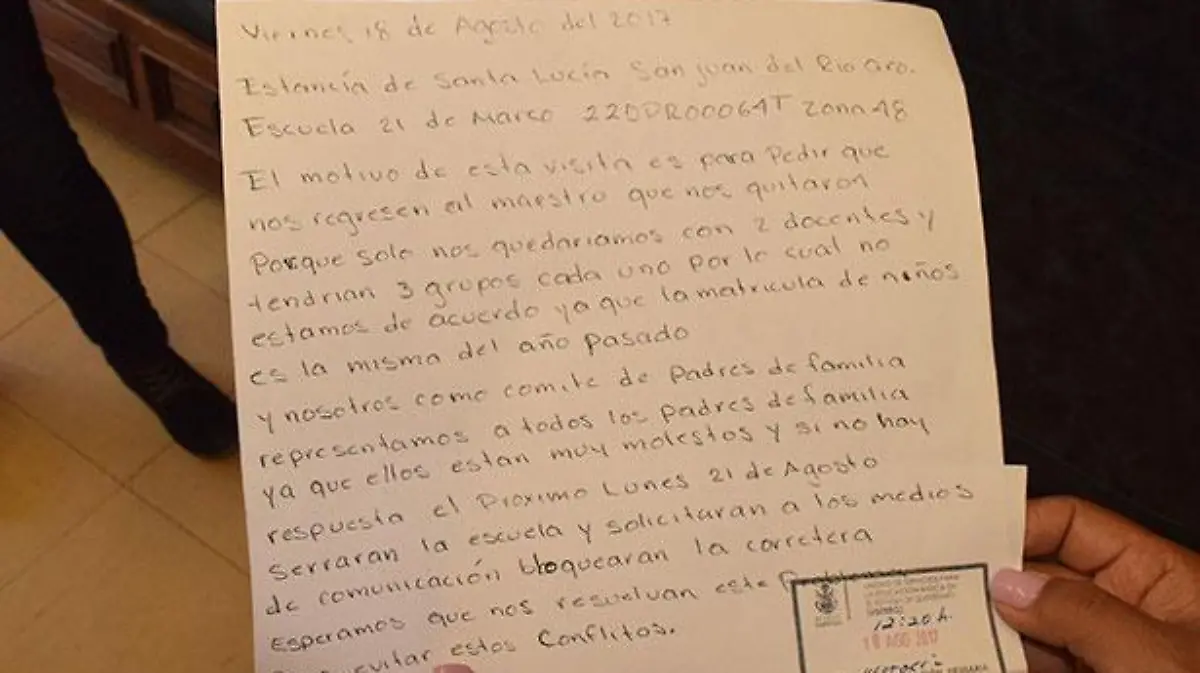 Viernes 18 de Agosto del 2017
Estancia de Santa Lucia San juan del Rio Qro.
Escuela 21 de Marzo 22DPR00064T Zona 48
El motivo de esta visita es para Pedir que
nos regresen al maestro que nos quitaron
Porque solo nos quedariamos con 2 docentes y
tendrian 3 grupos cada uno por lo cual no
estamos de acuerdo ya que la matricula de niños
es la misma del año pasado
y nosotros como comite de Padres de familia
representamos a todos los padres de familia
ya que ellos estan muy molestos y si no hay
respuesta el Proximo Lunes 21 de Agosto
serraran la escuela y solicitaran a los medios
de comunicación bloquearan la carretera
Esperamos que nos resuelvan este Problema
evitar estos Conflictos.
12:20 h.
18 AGO 2017